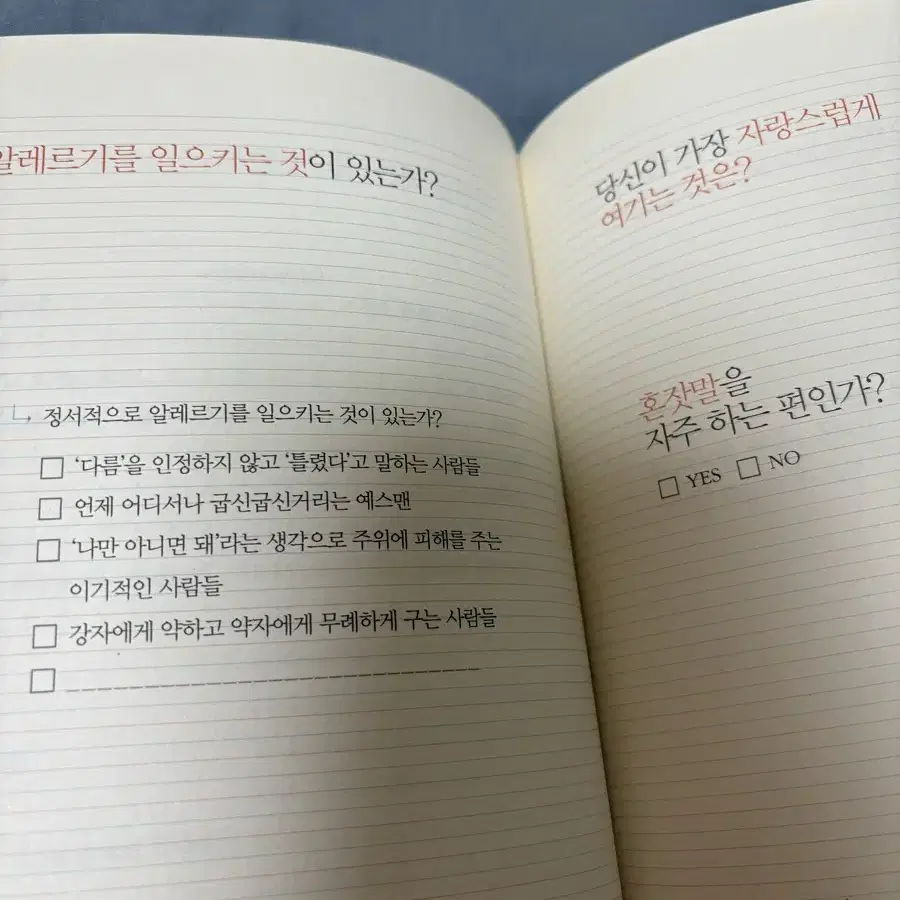 알레르기를 일으키는 것이 있는가?
정서적으로 알레르기를 일으키는 것이 있는가?
'다름'을 인정하지 않고 '틀렸다'고 말하는 사람들
언제 어디서나 굽신굽신거리는 예스맨
'나만 아니면 돼'라는 생각으로 주위에 피해를 주는
이기적인 사람들
강자에게 약하고 약자에게 무례하게 구는 사람들
당신이 가장 자랑스럽게
여기는 것은?
혼잣말을
자주 하는 편인가?
YES NO